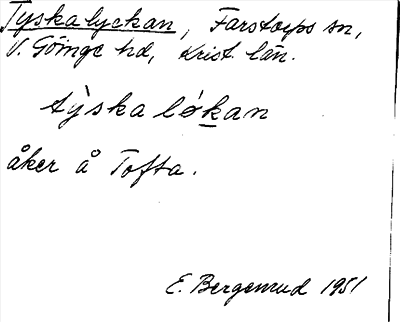 Tyskalyckan, Farstorps sn,
V. Göinge hd, Krist. län.
týska løkan
åker å Tofta.
E. Bergenrud 1951